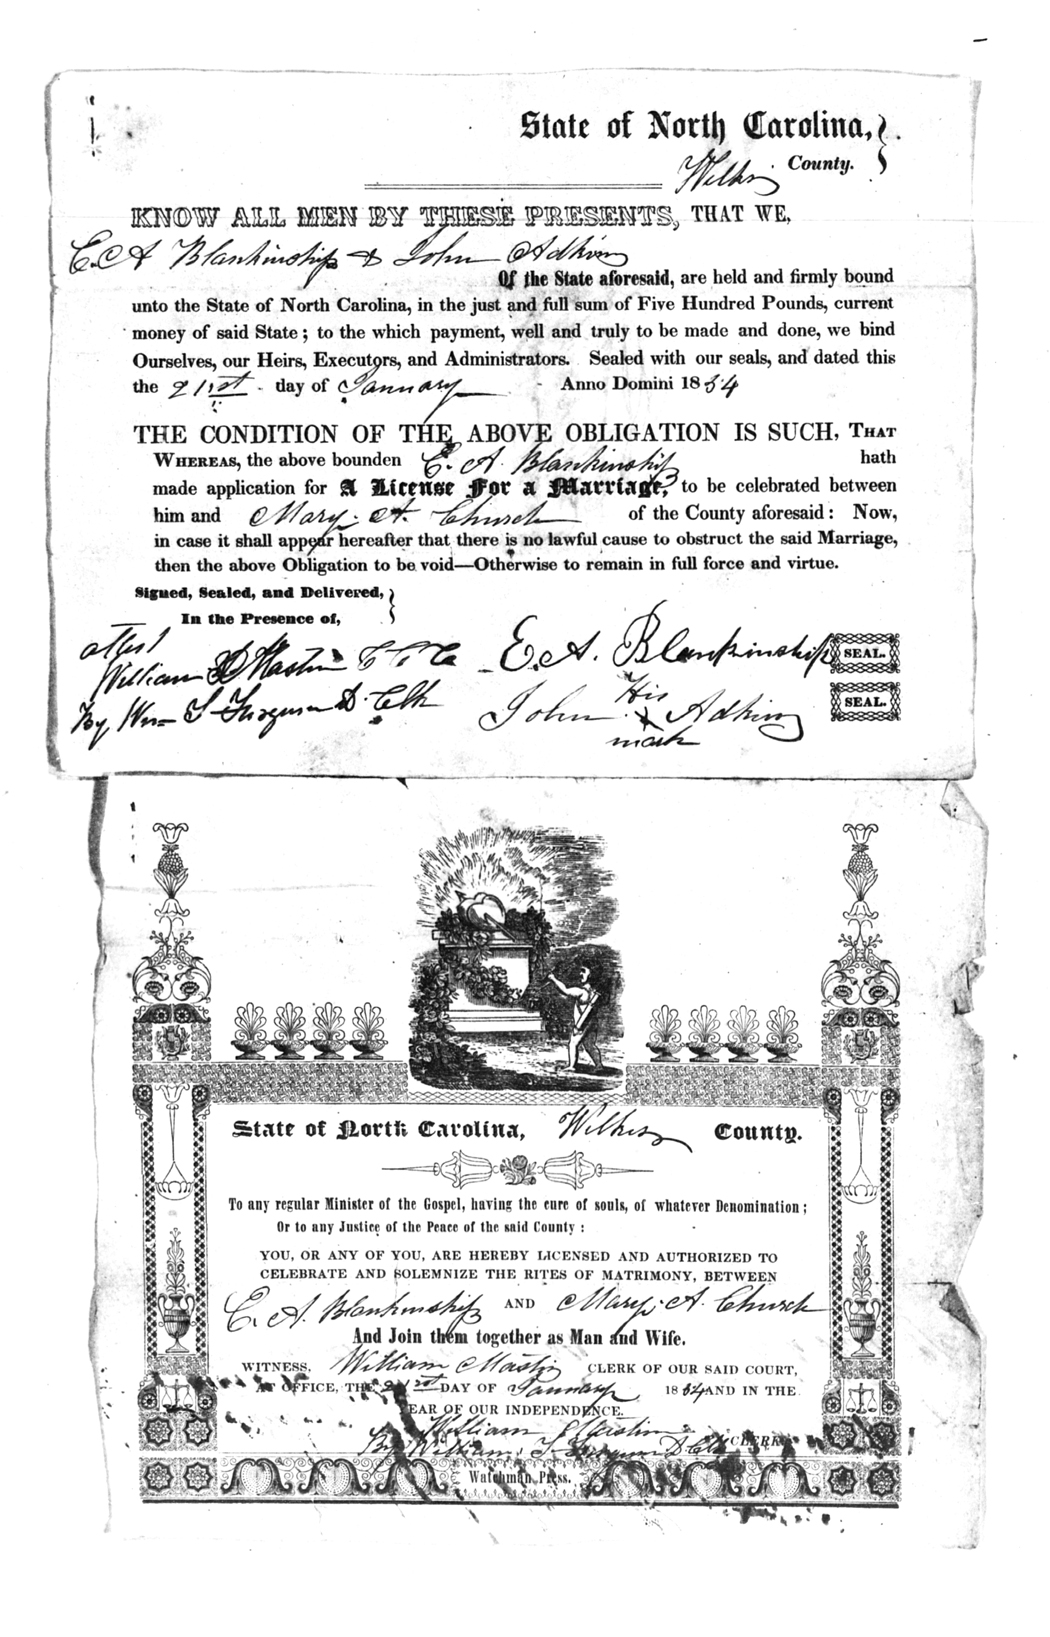 State of North Carolina,
Wilkes County.
KNOW ALL MEN BY THESE PRESENTS, THAT WE,
E. A Blankinship & John Adkins
Of the State aforesaid, are held and firmly bound
unto the State of North Carolina, in the just and full sum of Five Hundred Pounds, current
money of said State; to the which payment, well and truly to be made and done, we bind
Ourselves, our Heirs, Executors, and Administrators. Sealed with our seals, and dated this
the 21st day of January Anno Domini 1854
THE CONDITION OF THE ABOVE OBLIGATION IS SUCH, THAT
WHEREAS, the above bounden E. A. Blankinship hath
made application for A License For a Marriage, to be celebrated between
him and Mary. A. Church of the County aforesaid: Now,
in case it shall appear hereafter that there is no lawful cause to obstruct the said Marriage,
then the above Obligation to be void—Otherwise to remain in full force and virtue.
Signed, Sealed, and Delivered,
In the Presence of,
attest
William Mastin C C C
By Wm T Ferguson D. Clk
E. A. Blankinship SEAL.
His
John X Adkins SEAL.
mark
State of North Carolina, Wilkes County.
To any regular Minister of the Gospel, having the cure of souls, of whatever Denomination;
Or to any Justice of the Peace of the said County:
YOU, OR ANY OF YOU, ARE HEREBY LICENSED AND AUTHORIZED TO
CELEBRATE AND SOLEMNIZE THE RITES OF MATRIMONY, BETWEEN
E. A. Blankinship AND Mary. A. Church
And Join them together as Man and Wife.
WITNESS, William Mastin CLERK OF OUR SAID COURT,
AT OFFICE, THE 21st DAY OF January 1854 AND IN THE
YEAR OF OUR INDEPENDENCE.
William Mastin CLERK
By William. T. Ferguson D Clk
Watchman Press.